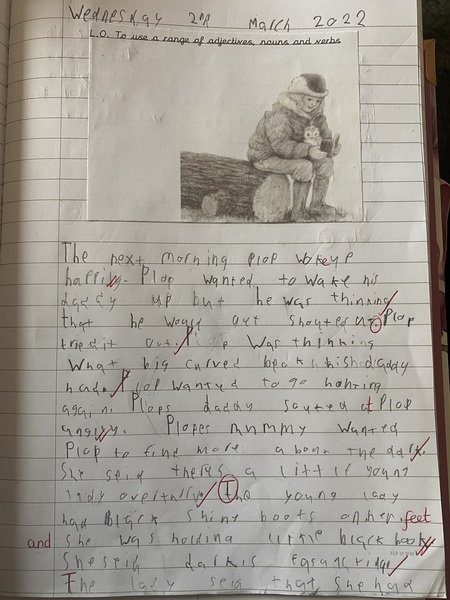 Wednesday 2nd March 2022
L.O. To use a range of adjectives, nouns and verbs
The next morning plop wokeup
happily. Plop wanted to wake his
daddy up but he was thinking
that he woud get shouted at. Plop
tried it out. Plop was thinking
what big curved beak his daddy
had. Plop wanted to go hunting
again. Plops daddy souted at Plop
angrily. Plopes mummy wanted
Plop to find more a bout the dark.
She seid theres a little young
lady overthere. The young lady
had black shiny boots on her feet
and she was holding little black book
She seid dark is
The lady seid that she had